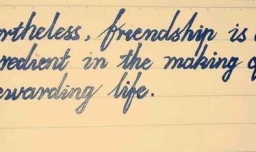 rtheless, friendship is
redient in the making
ewarding life.